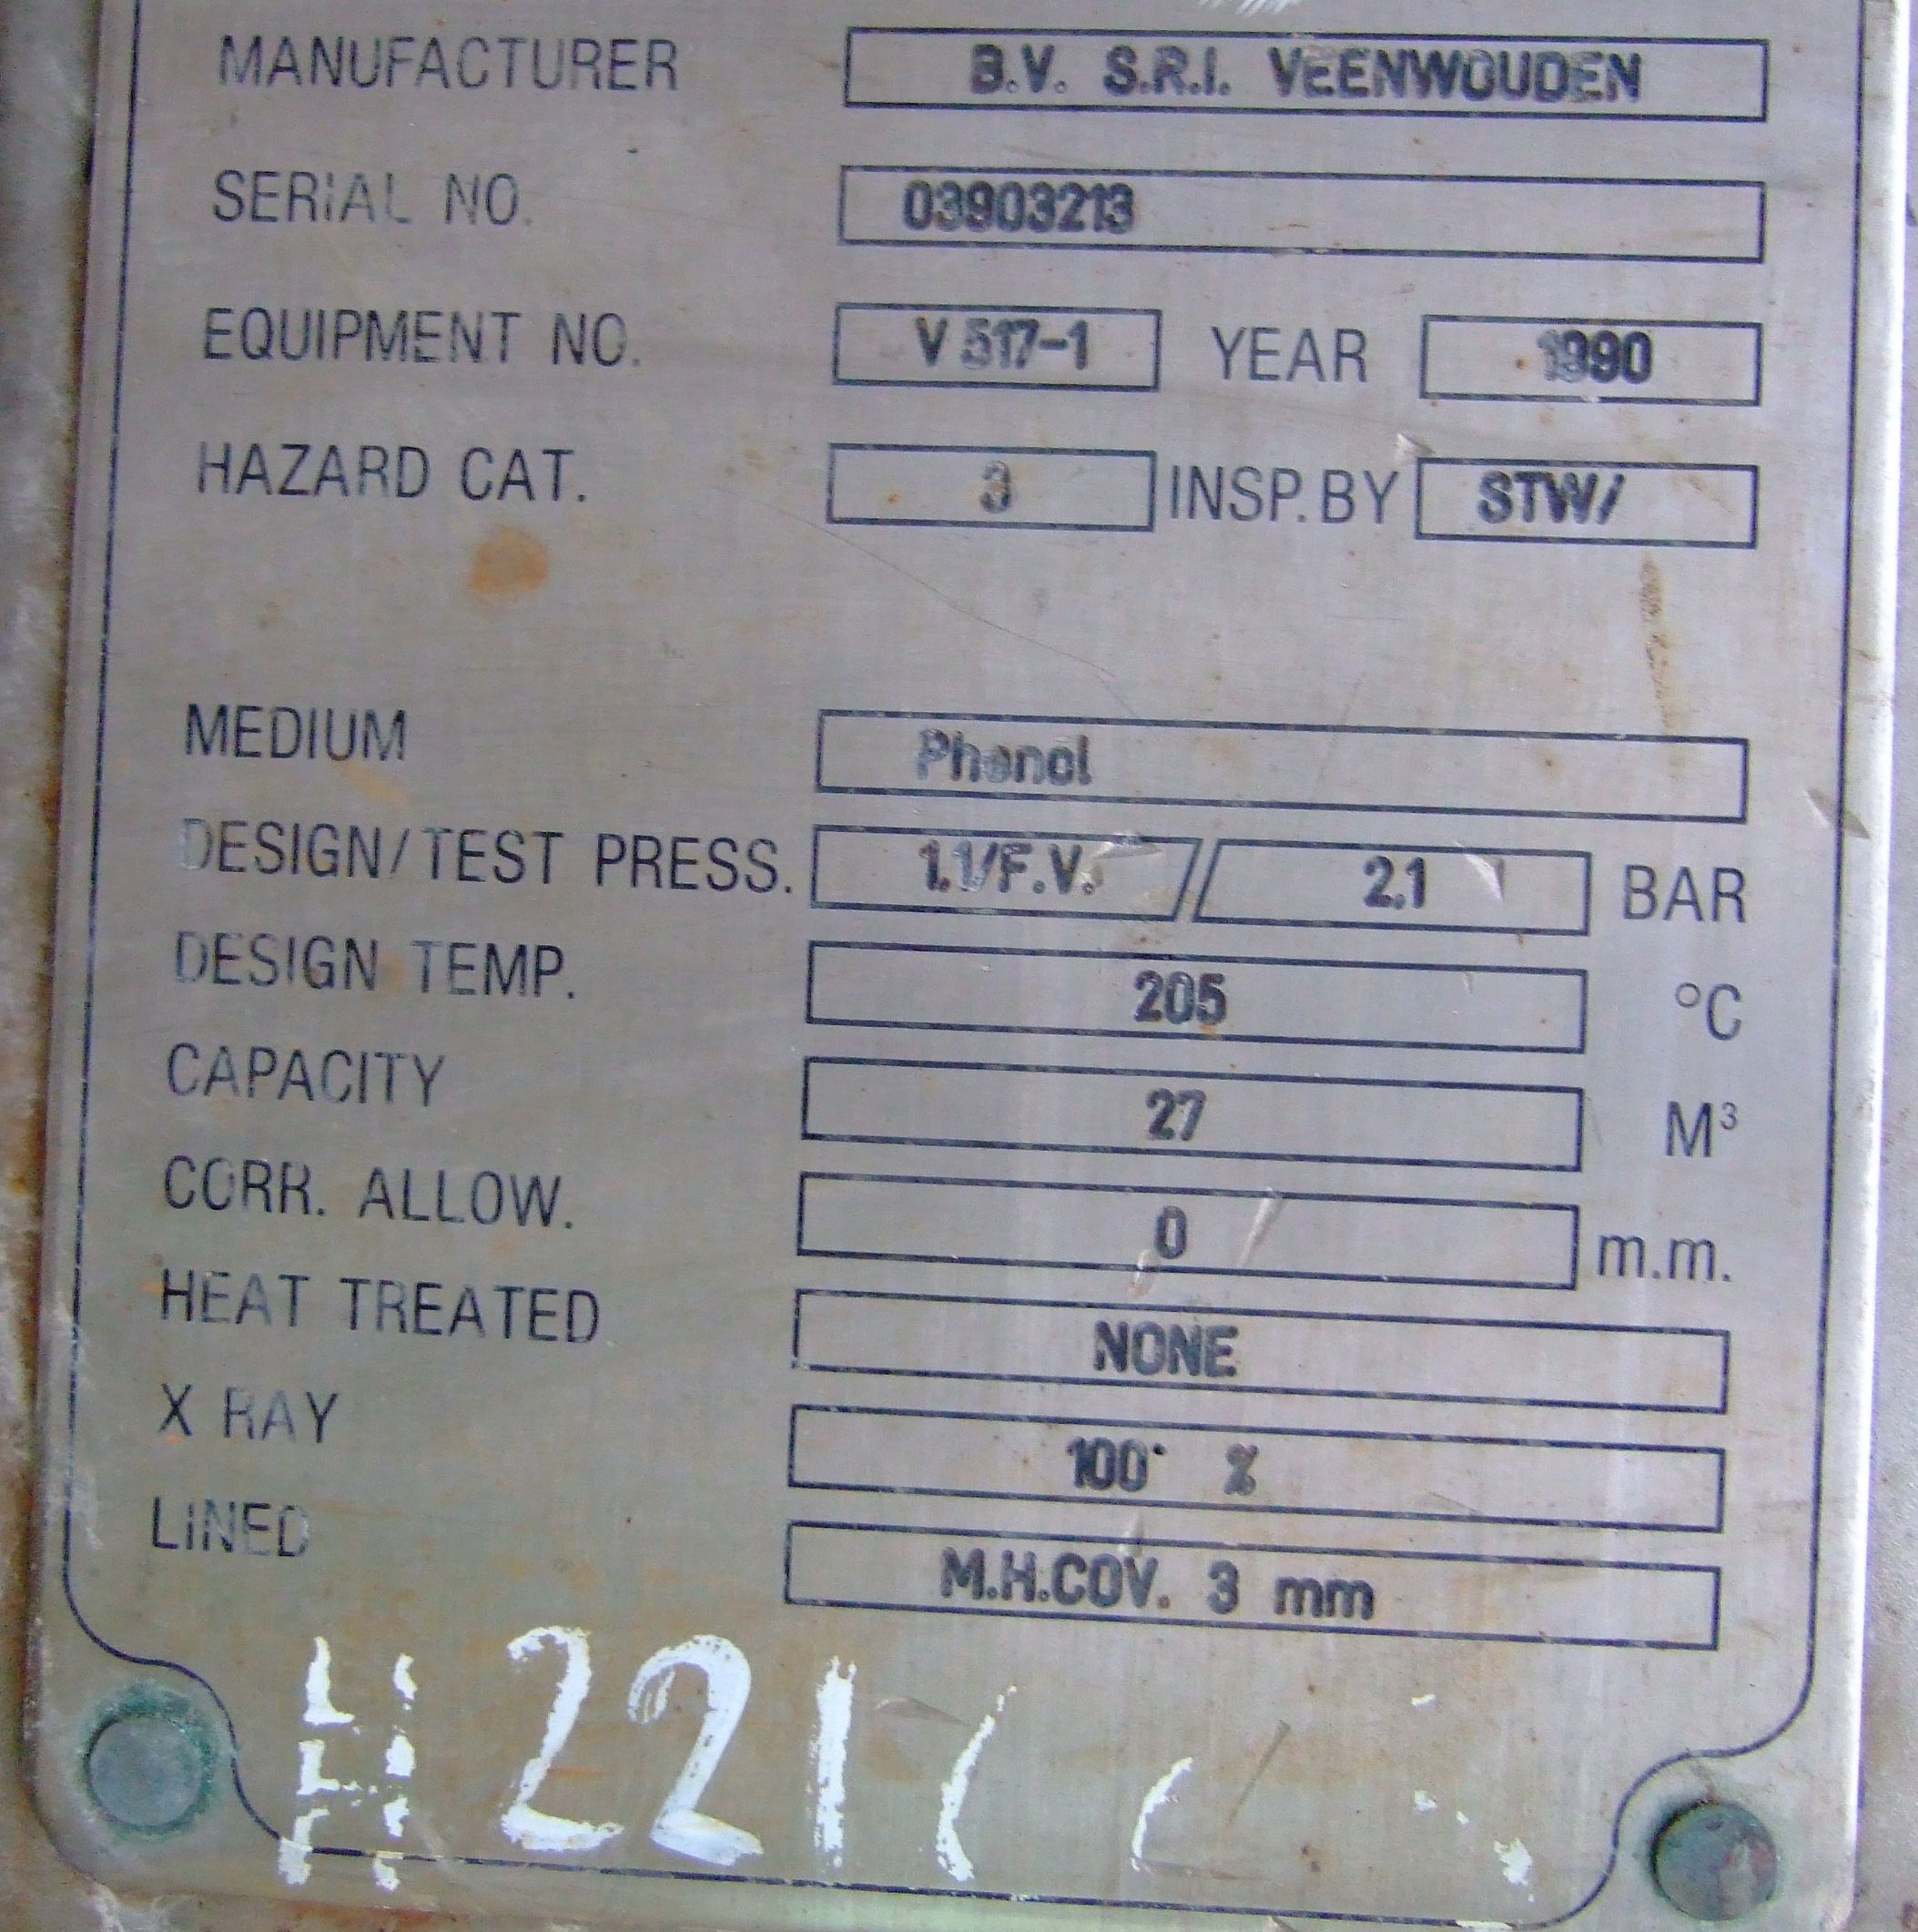 MANUFACTURER B.V. S.R.I. VEENWOUDEN
SERIAL NO. 03903213
EQUIPMENT NO. V 517-1 YEAR 1990
HAZARD CAT. 3 INSP. BY STW/
MEDIUM Phenol
DESIGN/TEST PRESS. 1.1/F.V. // 2.1 BAR
DESIGN TEMP. 205 °C
CAPACITY 27 M³
CORR. ALLOW. 0 m.m.
HEAT TREATED NONE
X RAY 100 %
LINED M.H.COV. 3 mm
H 221